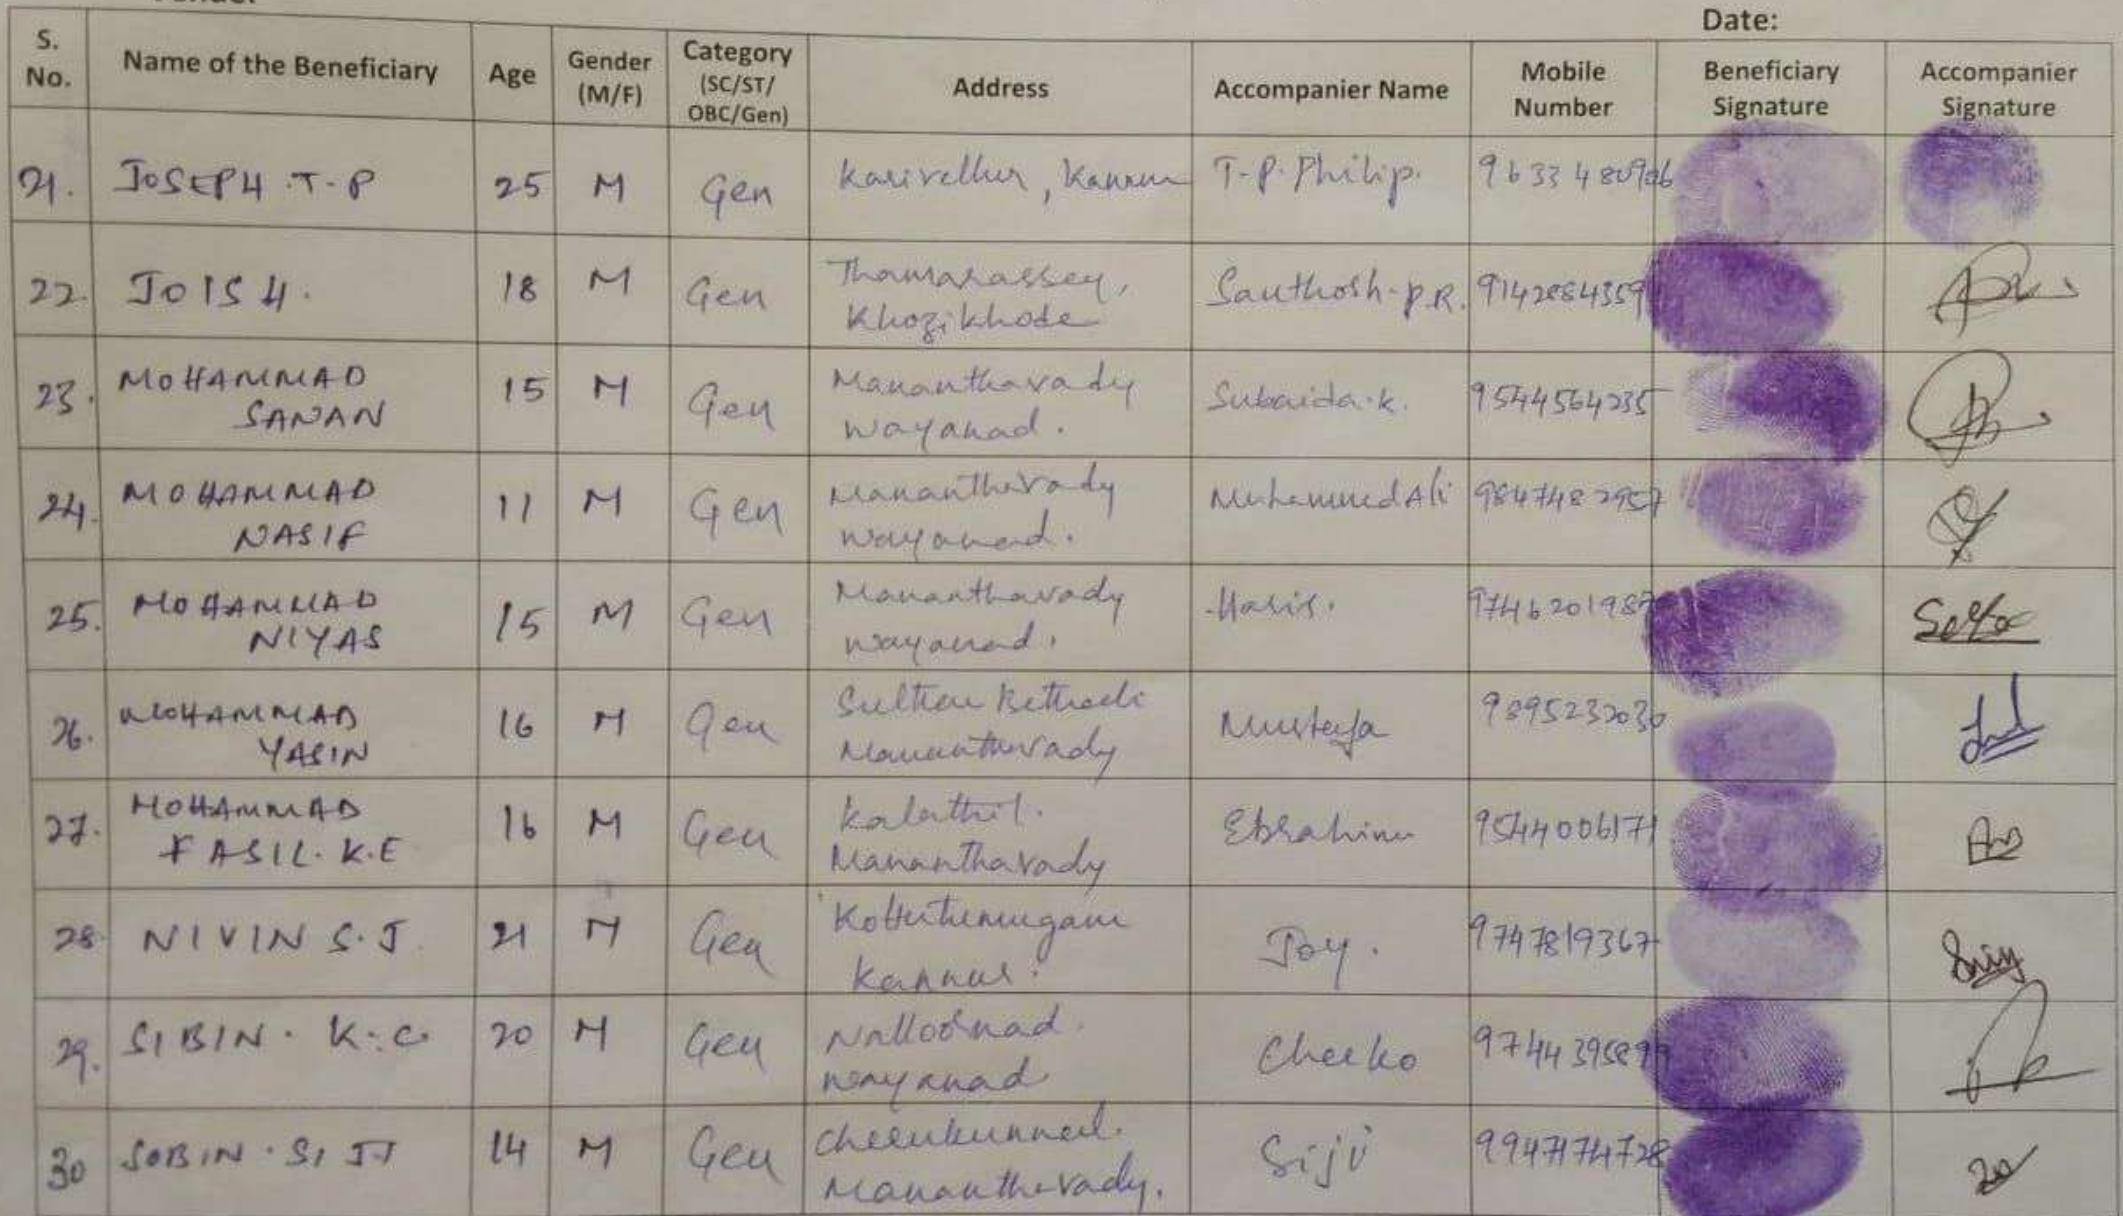 Date:
S. No. Name of the Beneficiary Age Gender (M/F) Category (SC/ST/OBC/Gen) Address Accompanier Name Mobile Number Beneficiary Signature Accompanier Signature
21. JOSEPH .T-P 25 M Gen Karivellur, Kannur T-P. Philip.
22. JOISH. 18 M Gen Thamarassey, Khozikhode Santhosh-P.R. 9142884359
23. MOHAMMAD SANAN 15 M Gen Mananthavady Wayanad. Subaida.K. 9544564235
24. MOHAMMAD NASIF 11 M Gen Mananthavady Wayanad. Muhammed Ali 9847482957
25. MOHAMMAD NIYAS 15 M Gen Mananthavady Wayanad. Haris. 9746201987
26. MOHAMMAD YASIN 16 M Gen Sultan Mananthavady Mustafa 9895232030
27. MOHAMMAD FASIL. K.E 16 M Gen Kalathil. Mananthavady Ebrahim 9544006171
28. NIVIN S.J 21 M Gen Kannur. Joy. 9747819367
29. SIBIN. K.C. 20 M Gen Nalloornad. Wayanad Cheeko
30 SOBIN. 14 M Gen Mananthavady. Siju 9947174728